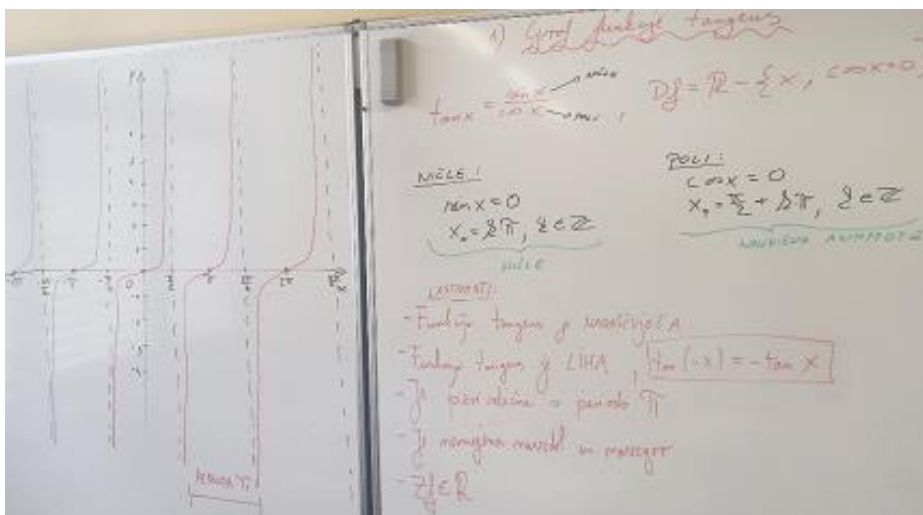 1) Graf funkcije tangens
tan x = sin x / cos x → ničle → poli , Df = ℝ - {x, cos x = 0
NIČLE:
sin x = 0
x₀ = kπ, k ∈ ℤ
NIČLE
POLI:
cos x = 0
x₀ = π/2 + kπ, k ∈ ℤ
NAVPIČNA ASIMPTOTA
LASTNOSTI:
- Funkcija tangens je NARAŠČAJOČA
- Funkcija tangens je LIHA, tan(-x) = -tan x
- Je periodična s periodo π
- Je neomejena navzdol in navzgor
- Zf ∈ ℝ
PERIODA π